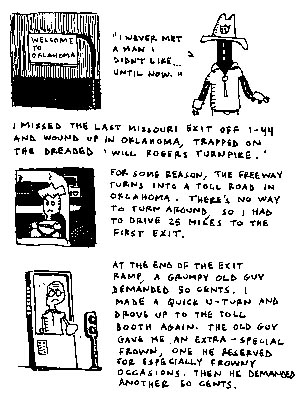 WELCOME
TO
OKLAHOMA!
"I NEVER MET
A MAN I
DIDN'T LIKE...
UNTIL NOW."
I MISSED THE LAST MISSOURI EXIT OFF I-44
AND WOUND UP IN OKLAHOMA, TRAPPED ON
THE DREADED 'WILL ROGERS TURNPIKE.'
FOR SOME REASON, THE FREEWAY
TURNS INTO A TOLL ROAD IN
OKLAHOMA. THERE'S NO WAY
TO TURN AROUND, SO I HAD
TO DRIVE 25 MILES TO THE
FIRST EXIT.
AT THE END OF THE EXIT
RAMP, A GRUMPY OLD GUY
DEMANDED 50 CENTS. I
MADE A QUICK U-TURN AND
DROVE UP TO THE TOLL
BOOTH AGAIN. THE OLD GUY
GAVE ME AN EXTRA-SPECIAL
FROWN, ONE HE RESERVED
FOR ESPECIALLY FROWNY
OCCASIONS. THEN HE DEMANDED
ANOTHER 50 CENTS.